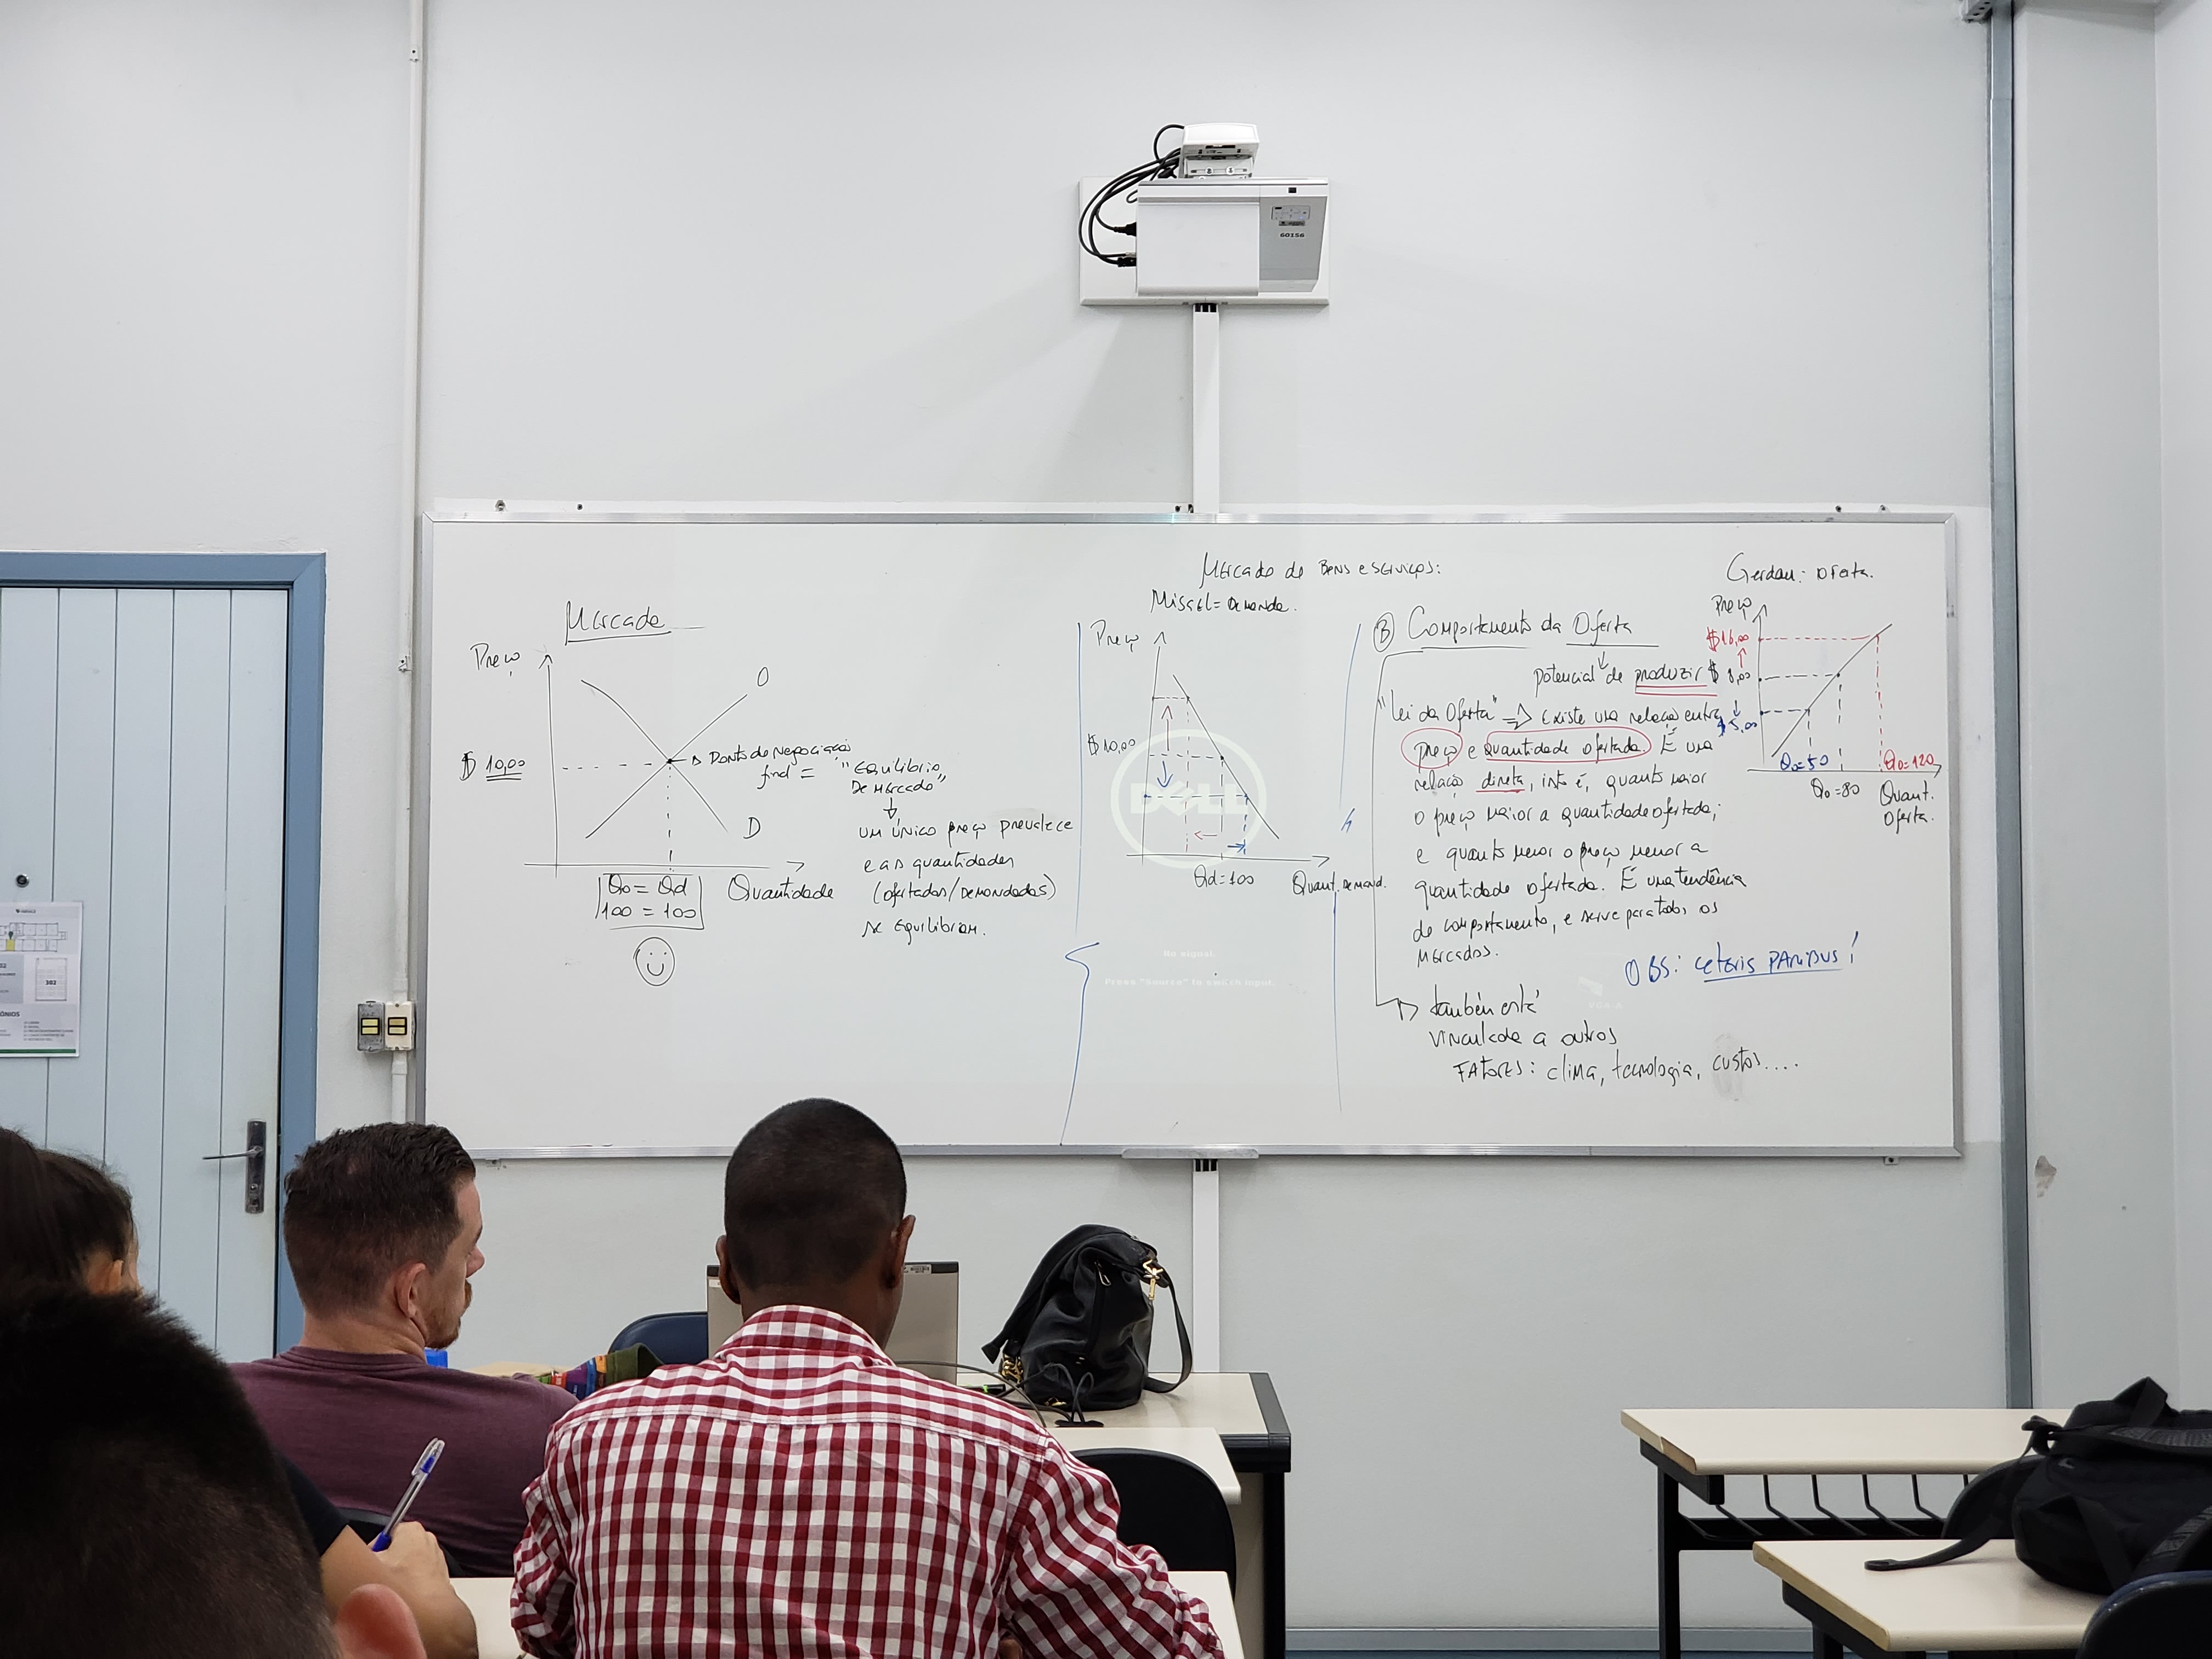 60156
Mercado de Bens e serviços:
Misael = Demanda.
Mercado
Preço
$ 10,00
O
D
Ponto de Negociação
final = "Equilíbrio
De Mercado"
um único preço prevalece
e as quantidades
(ofertadas/demandadas)
se equilibram.
Qo = Qd
100 = 100
Quantidade
Preço
$ 10,00
DELL
Qd = 100
Quant. Demand.
No signal.
Press "Source" to switch input.
B Comportamento da Oferta
potencial de produzir
"Lei da Oferta" => Existe uma relação entre
preço e quantidade ofertada. É uma
relação direta, isto é, quanto maior
o preço maior a quantidade ofertada;
e quanto menor o preço menor a
quantidade ofertada. É uma tendência
de comportamento, e serve para todos os
mercados.
OBS: ceteris PARIBUS!
também está
vinculada a outros
FATORES: clima, tecnologia, custos....
Gerdau: oferta.
Preço
$ 16,00
$ 8,00
$ 5,00
Qo=50
Qo=120
Qo=80
Quant.
Oferta.
302